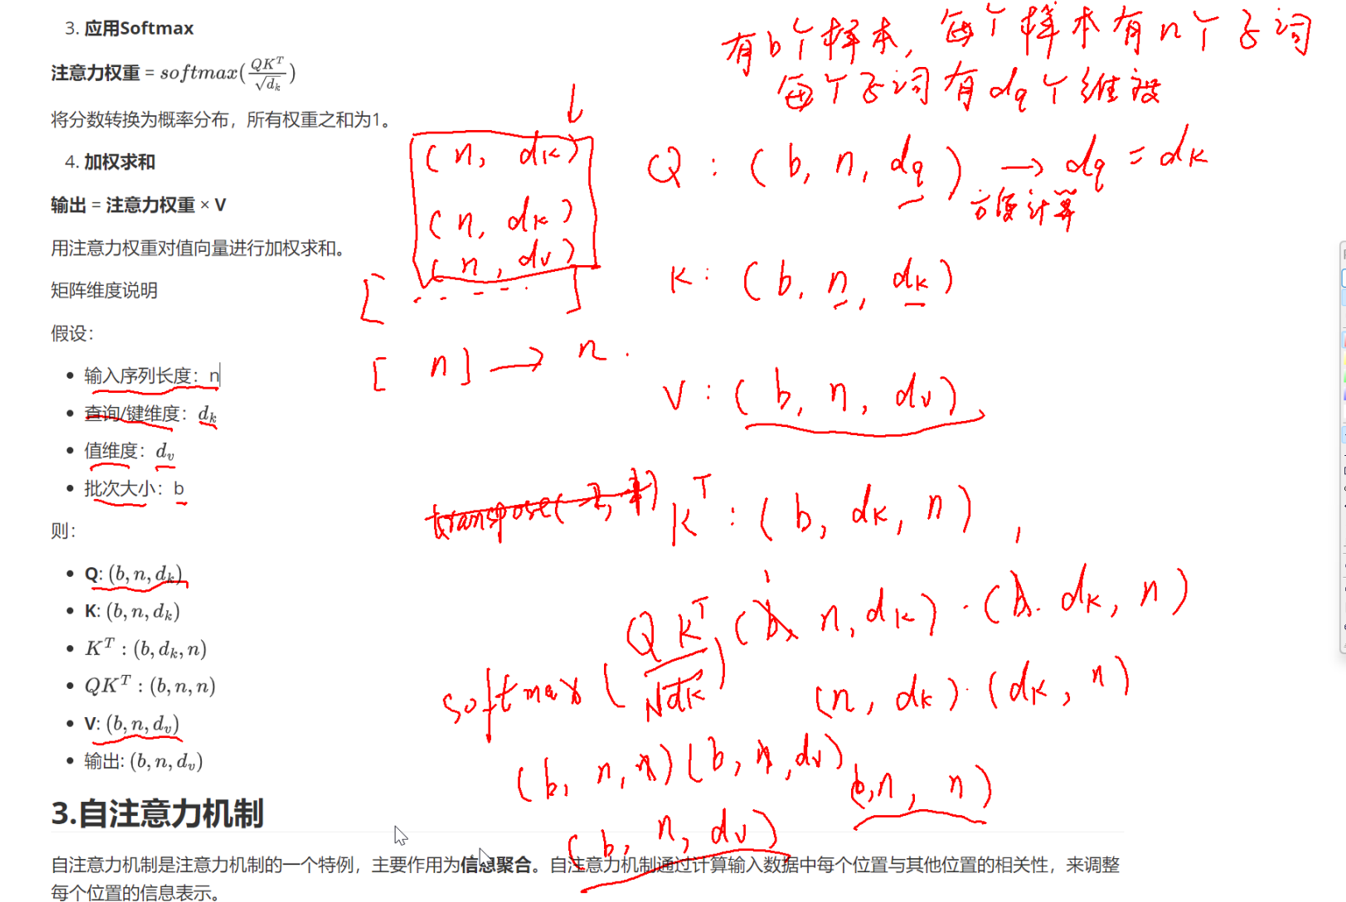 3. 应用Softmax
注意力权重 = softmax(QK^T/√d_k)
将分数转换为概率分布，所有权重之和为1。
4. 加权求和
输出 = 注意力权重 × V
用注意力权重对值向量进行加权求和。
矩阵维度说明
假设：
• 输入序列长度：n
• 查询/键维度：d_k
• 值维度：d_v
• 批次大小：b
则：
• Q: (b, n, d_k)
• K: (b, n, d_k)
• K^T : (b, d_k, n)
• QK^T : (b, n, n)
• V: (b, n, d_v)
• 输出: (b, n, d_v)
有b个样本，每个样本有n个子词
每个子词有dq个维度
b
(n, dk)
(n, dk)
(n, dv)
[ ...... ]
[ n] → n.
Q : (b, n, dq) → dq = dk
方便计算
K : (b, n, dk)
V : (b, n, dv)
K^T : (b, dk, n),
softmax(QK^T/√dk)
(b, n, dk) · (b. dk, n)
(n, dk) · (dk, n)
(b, n, n)
(b, n, n)(b, n, dv)
(b, n, dv)
3.自注意力机制
自注意力机制是注意力机制的一个特例，主要作用为信息聚合。自注意力机制通过计算输入数据中每个位置与其他位置的相关性，来调整
每个位置的信息表示。